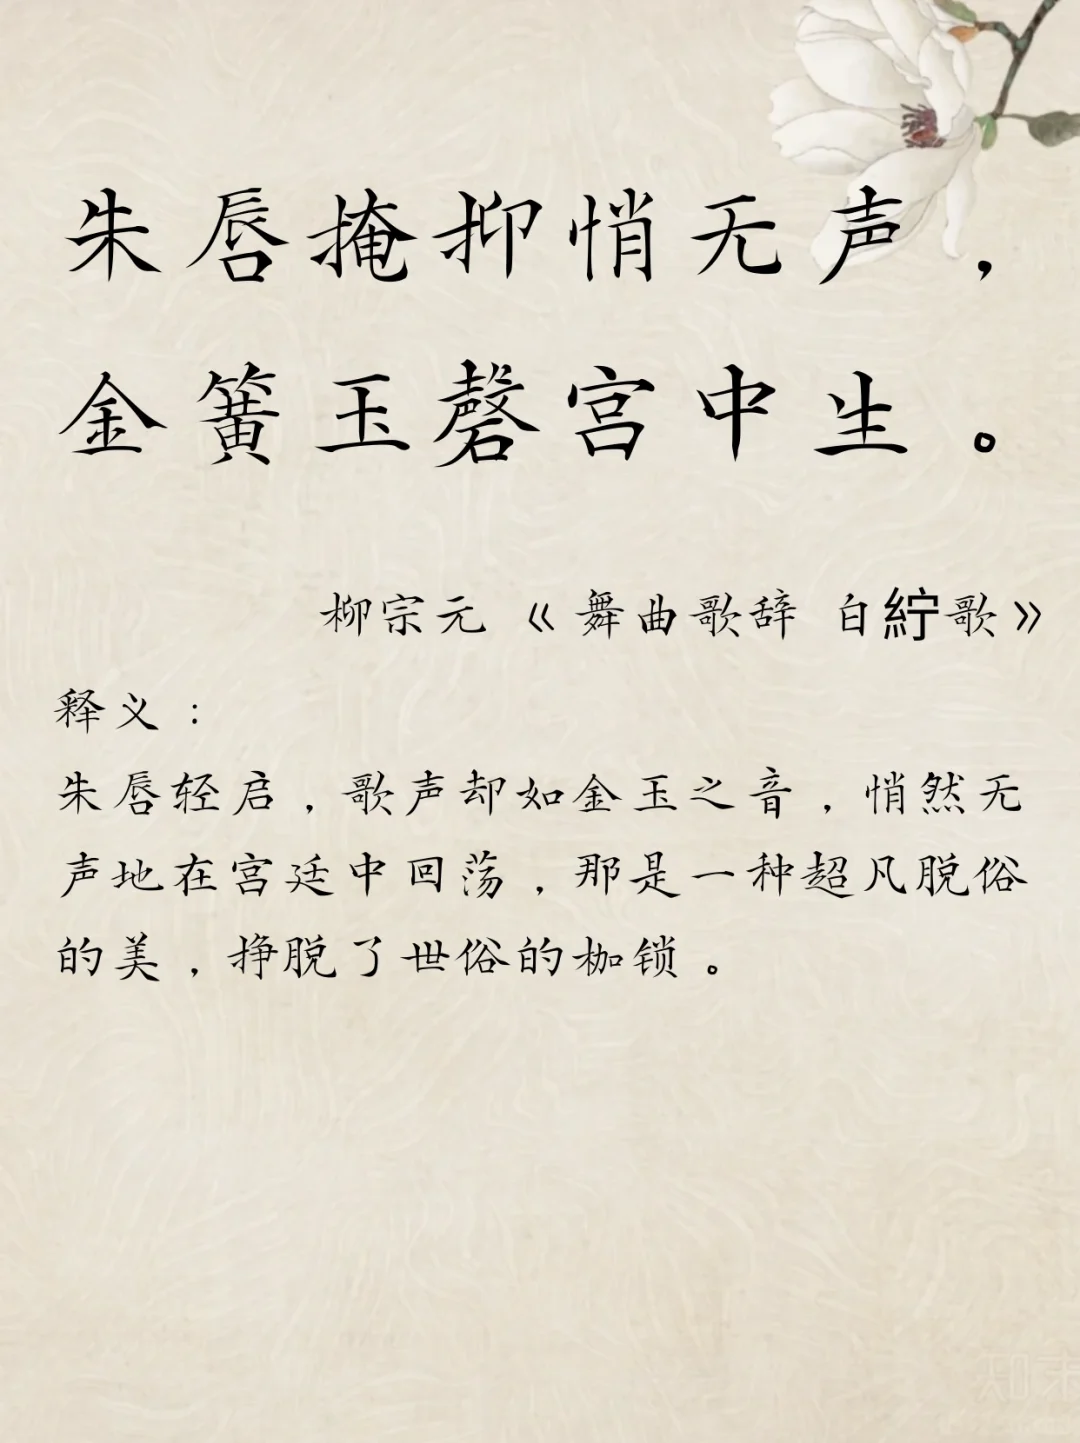 朱唇掩抑悄无声，
金簧玉磬宫中生。
柳宗元《舞曲歌辞 白紵歌》
释义：
朱唇轻启，歌声却如金玉之音，悄然无
声地在宫廷中回荡，那是一种超凡脱俗
的美，挣脱了世俗的枷锁。